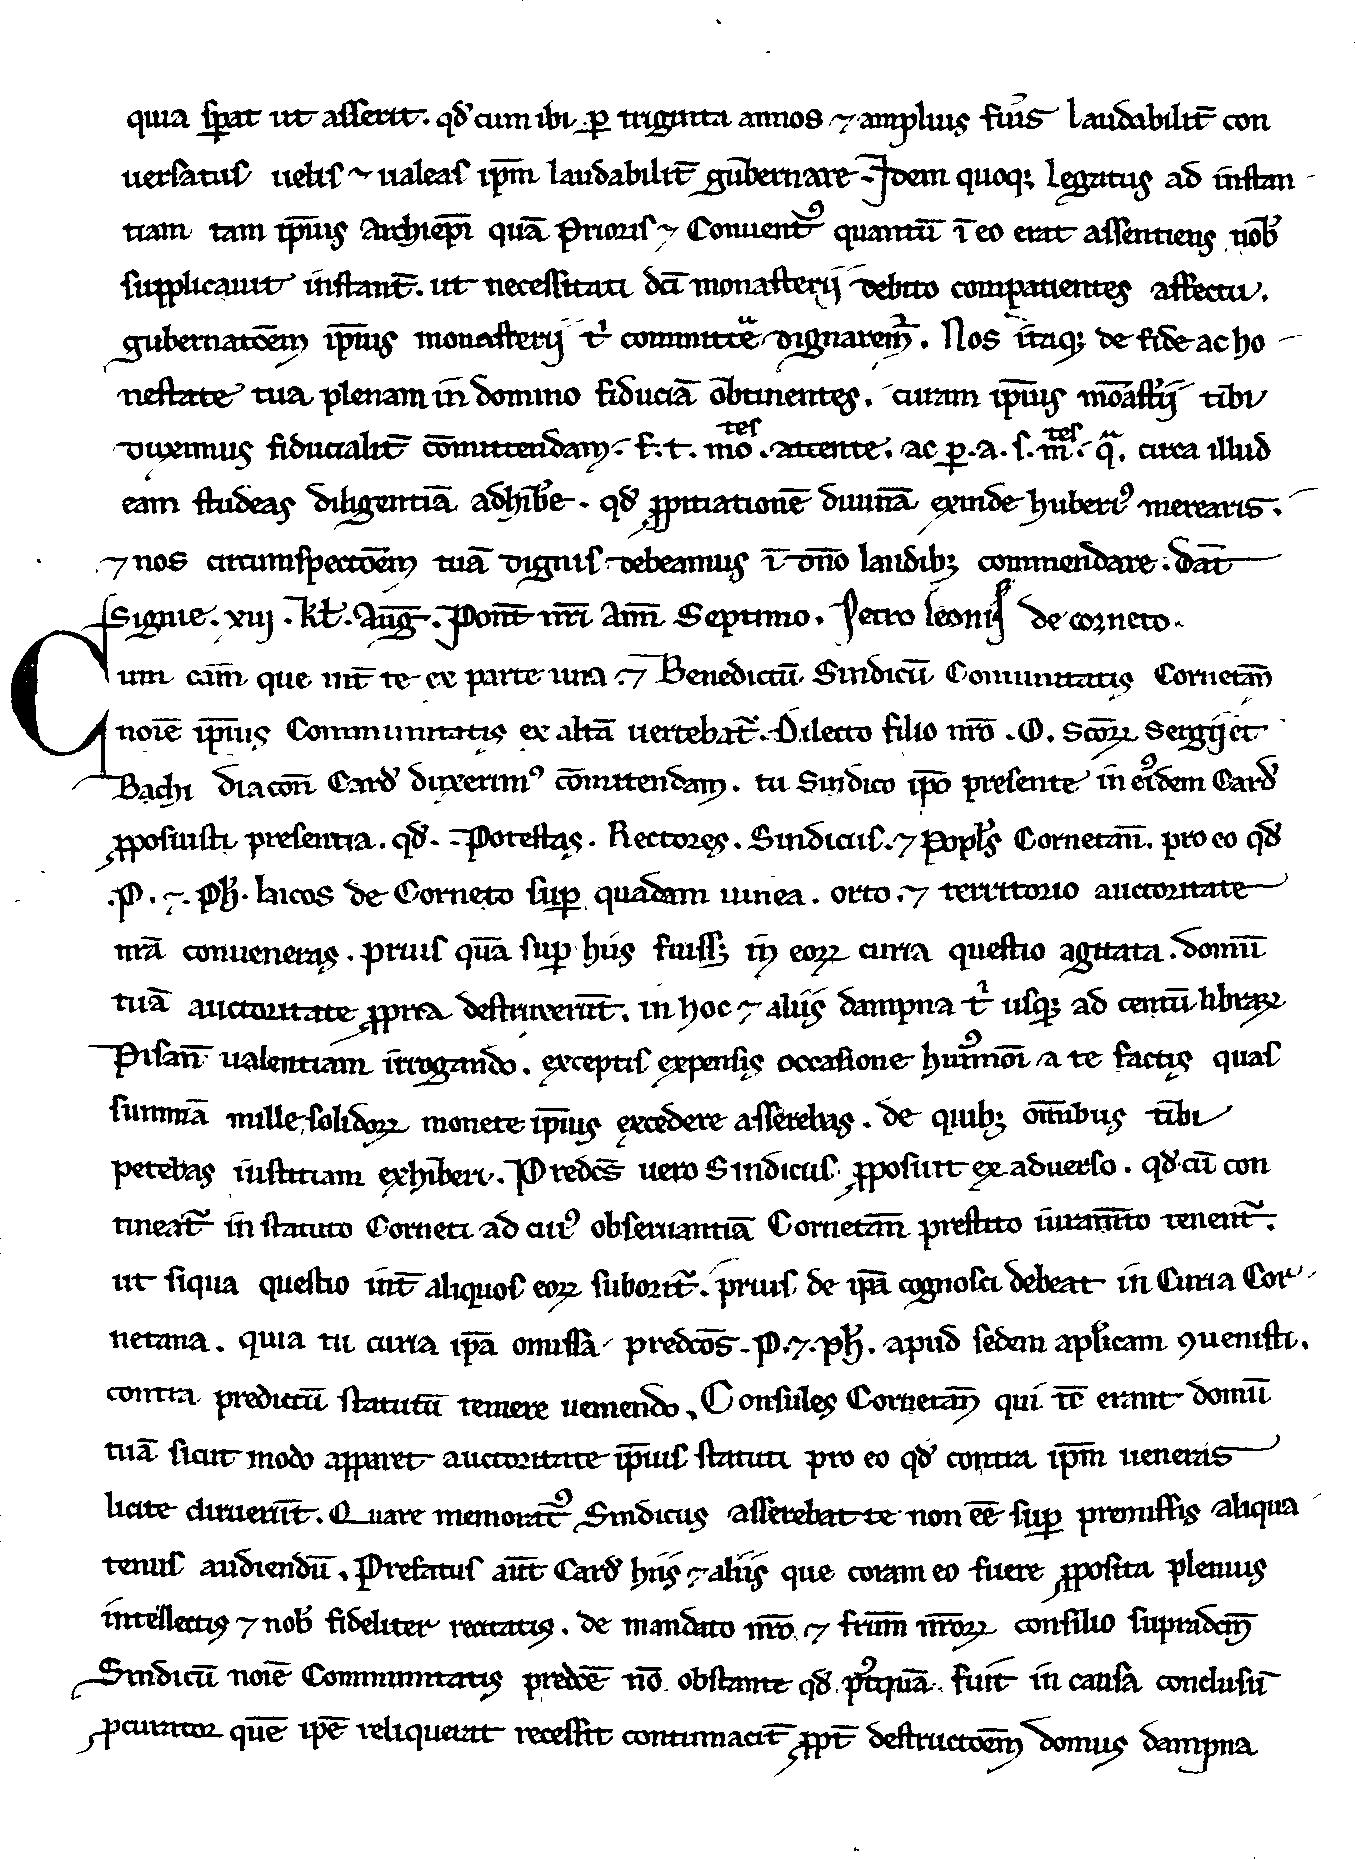 quia sperat ut asserit. qđ cum ibi ꝑ triginta annos ⁊ amplius fuĩs laudabilit̃ con
uersatus uelis ⁊ ualeas ip̃m laudabilit̃ gub̃ernare. Idem quoq; legatus ad instan
tiam tam ip̃ius Archiep̃i quã Prioris ⁊ Conuent᷒ quantũ ĩ eo erat assentiens nob̃
supplicauit instant̃. ut necessitati dc̃i monasterii debito compatientes affectu.
gubernatõem ip̃ius monasterij t͛ committ̃e dignarem͛. Nos itaq; de fide ac ho
nestate tua plenam in domino fiduciã ob̃tinentes. curam ip̃ius mõast̃ii tibi
duximus fiducialit̃ cõmittendam. f. t. mo᷒tes. attente. ac ꝑ. a. s. m̃tes. q̃. circa illud
eam studeas diligentiã adhib̃e. qđ ꝓpitiationẽ diuinã exinde huberi᷒ merearis.
⁊ nos circumspectõem tuã dignis debeamus ĩ dño laudib; commendare. Dat̃
Signie. xiij. kl̃. Aug̃. Pont̃ nr̃i Ann̄ Septimo. Petro leonis de corneto.
Cum cãm que int̃ te ex parte una ⁊ Benedictũ Sindicũ Comunitatis Cornetañ
noĩe ip̃ius Communitatis ex altã uertebat̃. Dilecto filio nr̃o. O. Sc̃oꝝ Sergij et
Bachi diacoñ Carđ duxerim᷒ cõmittendam. tu Sindico ip̃o presente in ei᷒dem Carđ
ꝓposuisti presentia. qđ. Potestas. Rectores. Sindicus. ⁊ Popl̃s Cornetañ. pro eo qđ
.P. ⁊. Ph̃. laicos de Corneto suꝑ quadam uinea. orto. ⁊ territorio auctoritate
nr̃a conueneras. prius quã suꝑ hiis fuiss; in eoꝝ curia questio agitata. domũ
tuã auctoritate ꝓpria destruxerũt. in hoc ⁊ aliis dampna t͛ usq; ad centũ libraꝝ
Pisañ ualentiam irrogando. exceptis expensis occasione hui᷒mõi a te factis quas
summã mille solidoꝝ monete ip̃ius excedere asserebas. de quib; om̃ibus tibi
petebas iustitiam exhiberi. Predc̃s uero Sindicus ꝓposuit ex aduerso. qđ cũ con
tineat̃ in statuto Corneti ad cui᷒ obseruantiã Cornetañ prestito iuram̃to tenent̃.
ut siqua questio int̃ aliquos eoꝝ suborit̃. prius de ip̃a cognosci debeat in Curia Cor
netana. quia tu curia ip̃a omissa predc̃os. P. ⁊. Ph̃. apud sedem apl̃icam ꝯuenisti.
contra predictũ statutũ temere ueniendo. Consules Cornetañ qui tc̃ erant domũ
tuã sicut modo apparet auctoritate ip̃ius statuti pro eo qđ contra ip̃m ueneris
licite diruerũt. Quare memorat᷒ Sindicus asserebat te non ẽe suꝑ premissis aliqua
tenus audiendũ. Prefatus aũt Carđ hiis ⁊ aliis que coram eo fuere ꝓposita plenius
intellectis ⁊ nob̃ fideliter recitatis. de mandato nr̃o ⁊ frũm nr̃oꝝ consilio supradcm̃
Sindicũ noĩe Communitatis predc̃e nõ obstante qđ p᷒tquã fuit in causa conclusũ
ꝓcurator quẽ ip̃e reliquerat recessit contumacit̃ ꝓpt̃ destructõem domus dampna